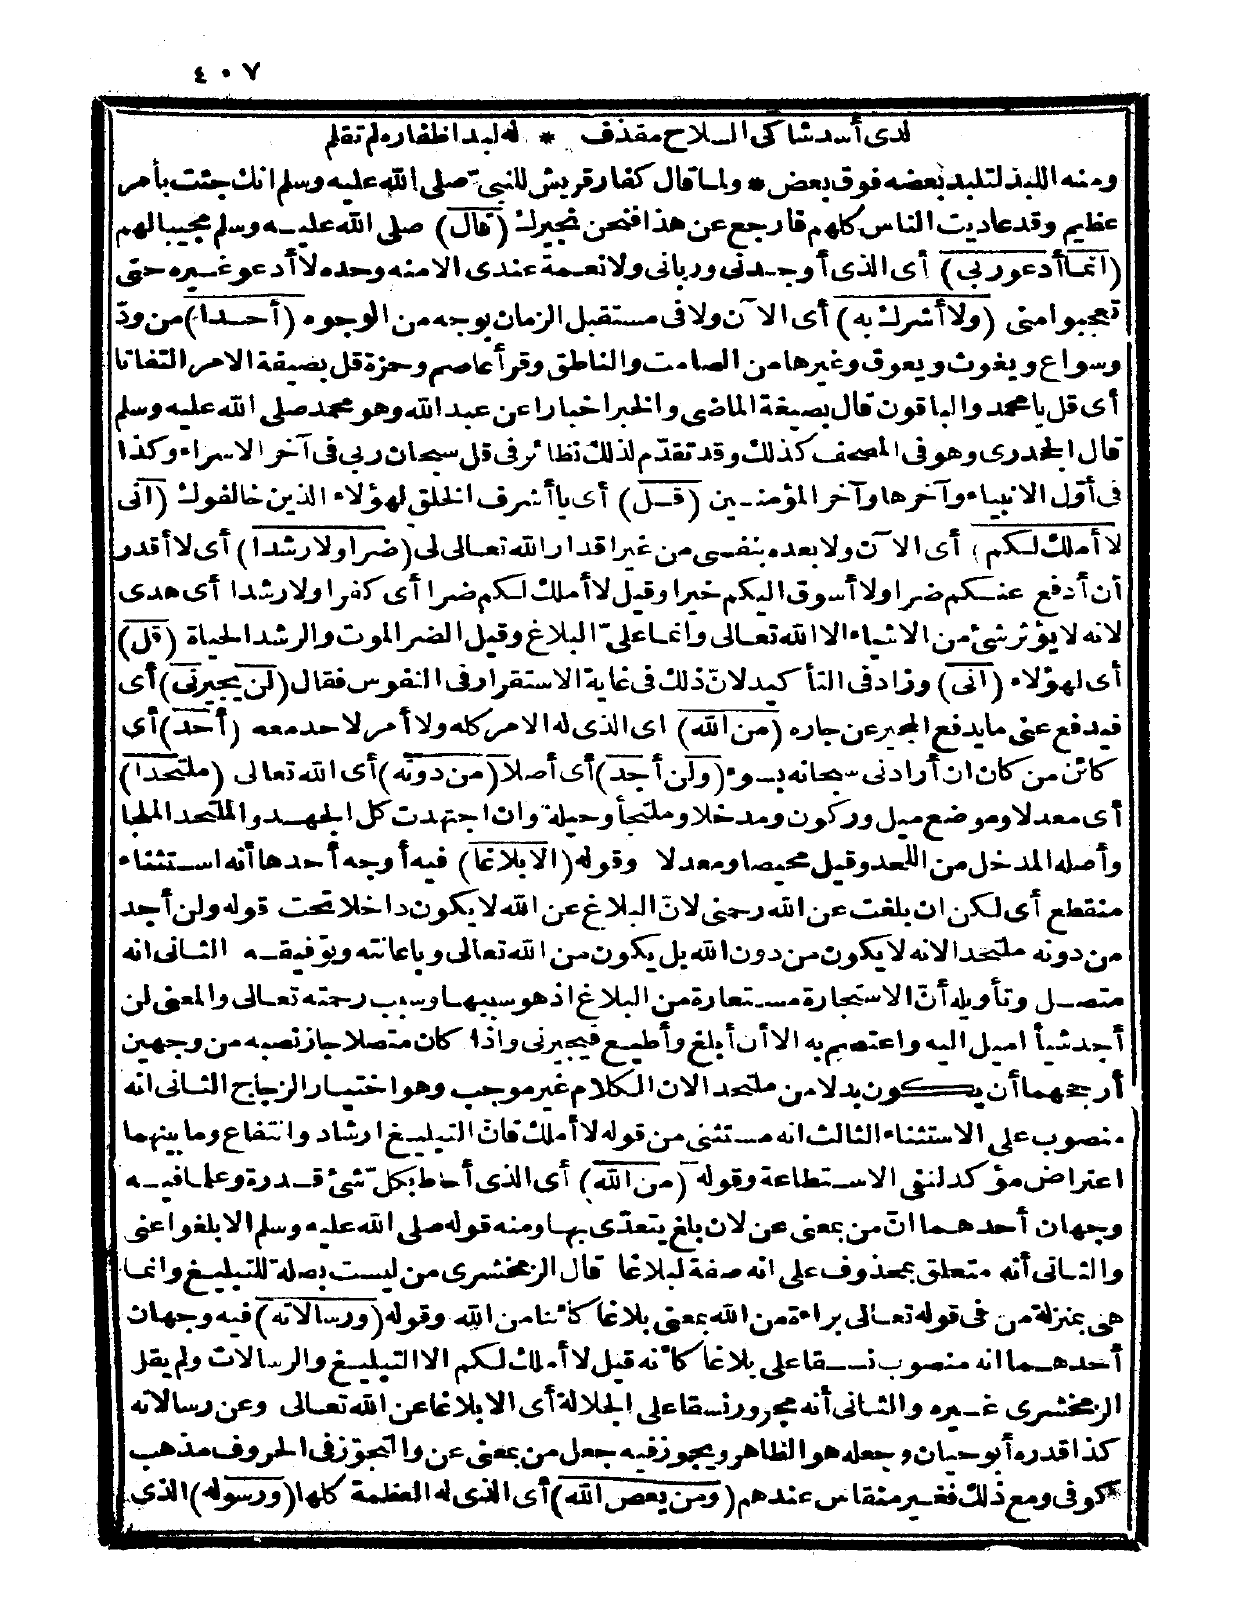 ٤٠٧
لدى أسد شاكى السلاح مقذف * له لبد اظفاره لم تقلم
ومنه اللبد لتلبد بعضه فوق بعض * ولما قال كفار قريش للنبىّ صلى الله عليه وسلم انك جئت بأمر
عظيم وقد عاديت الناس كلهم فارجع عن هذا فنحن نجيرك (قال) صلى الله عليه وسلم مجيبا لهم
(انما أدعو ربى) أى الذى أوجدنى وربانى ولا نعمة عندى الا منه وحده لا أدعو غيره حتى
تعجبوا منى (ولا أشرك به) أى الآن ولا فى مستقبل الزمان بوجه من الوجوه (أحدا) من ودّ
وسواع ويغوث ويعوق وغيرها من الصامت والناطق وقرأ عاصم وحمزة قل بصيغة الامر التفاتا
أى قل يا محمد والباقون قال بصيغة الماضى والخبر اخبارا عن عبد الله وهو محمد صلى الله عليه وسلم
قال الجحدرى وهو فى المصحف كذلك وقد تقدّم لذلك نظائر فى قل سبحان ربى فى آخر الاسراء وكذا
فى أوّل الانبياء وآخرها وآخر المؤمنين (قل) أى يا أشرف الخلق لهؤلاء الذين خالفوك (انى
لا أملك لكم) أى الآن ولا بعده بنفسى من غير اقدار الله تعالى لى (ضرا ولا رشدا) أى لا أقدر
أن أدفع عنكم ضرا ولا أسوق اليكم خيرا وقيل لا أملك لكم ضرا أى كفرا ولا رشدا أى هدى
لانه لا يؤثر شئ من الاشياء الا الله تعالى وانما علىّ البلاغ وقيل الضر الموت والرشد الحياة (قل)
أى لهؤلاء (انى) وزاد فى التأكيد لانّ ذلك فى غاية الاستقرار فى النفوس فقال (لن يجيرنى) أى
فيدفع عنى ما يدفع المجير عن جاره (من الله) اى الذى له الامر كله ولا أمر لاحد معه (أحد) أى
كائن من كان ان أرادنى سبحانه بسوء (ولن أجد) أى أصلا (من دونه) أى الله تعالى (ملتحدا)
أى معدلا وموضع ميل وركون ومدخلا وملتجأ وحيلة وان اجتهدت كل الجهد والملتحد الملجا
وأصله المدخل من اللحد وقيل محيصا ومعدلا وقوله (الا بلاغا) فيه أوجه أحدها أنه استثناء
منقطع أى لكن ان بلغت عن الله رحمنى لانّ البلاغ عن الله لا يكون داخلا تحت قوله ولن أجد
من دونه ملتحدا لانه لا يكون من دون الله بل يكون من الله تعالى وباعانته وتوفيقه الثانى انه
متصل وتأويله أنّ الاستجارة مستعارة من البلاغ اذ هو سببها وسبب رحمته تعالى والمعنى لن
أجد شيأ اميل اليه واعتصم به الا أن أبلغ وأطيع فيجيرنى واذا كان متصلا جاز نصبه من وجهين
أرجحهما أن يكون بدلا من ملتحدا لان الكلام غير موجب وهو اختيار الزجاج الثانى انه
منصوب على الاستثناء الثالث انه مستثنى من قوله لا أملك فانّ التبليغ ارشاد وانتفاع وما بينهما
اعتراض مؤكد لنفى الاستطاعة وقوله (من الله) أى الذى أحاط بكل شئ قدرة وعلما فيه
وجهان أحدهما انّ من بمعنى عن لان بلغ يتعدّى بها ومنه قوله صلى الله عليه وسلم الا بلغوا عنى
والثانى أنه متعلق بمحذوف على انه صفة لبلاغا قال الزمخشرى من ليست بصلة للتبليغ وانما
هى بمنزلة من فى قوله تعالى براءة من الله بمعنى بلاغا كائنا من الله وقوله (ورسالاته) فيه وجهان
أحدهما انه منصوب نسقا على بلاغا كأنه قيل لا أملك لكم الا التبليغ والرسالات ولم يقل
الزمخشرى غيره والثانى أنه مجرور نسقا على الجلالة أى الا بلاغا عن الله تعالى وعن رسالاته
كذا قدره أبو حيان وجعله هو الظاهر ويجوز فيه جعل من بمعنى عن والتجوّز فى الحروف مذهب
كوفى ومع ذلك فغير منقاس عندهم (ومن يعص الله) أى الذى له العظمة كلها (ورسوله) الذى